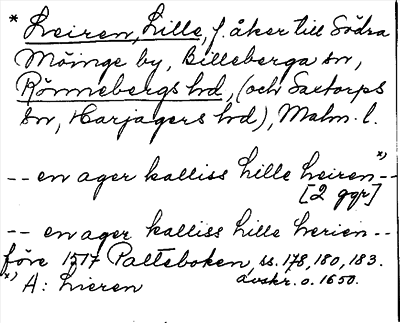 * Leiren, Lille, f. åker till Södra
Möinge by, Billeberga sn,
Rönnebergs hd, (och Saxtorps
sn, Harjagers hd), Malm. l.
-- en ager kalliss Lille Leiren *) --
[2 ggr]
-- en ager kalliss Lille Lerien --
före 1517 Palteboken, ss. 178, 180, 183.
avskr. o. 1650.
*) A: Lieren